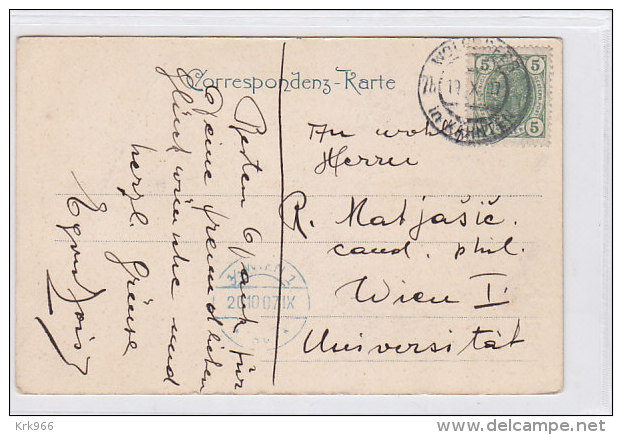 Correspondenz-Karte
Besten Dank für
Deine freundlichen
Glückwünsche und
herzl. Grüsse
An wohl
Herrn
R. Matjašič.
cand. phil.
Wien I
Universität
5 5
5
in KÄRNTEN
WIEN 1
20.10.07.IX
Krk966
www.delcampe.net